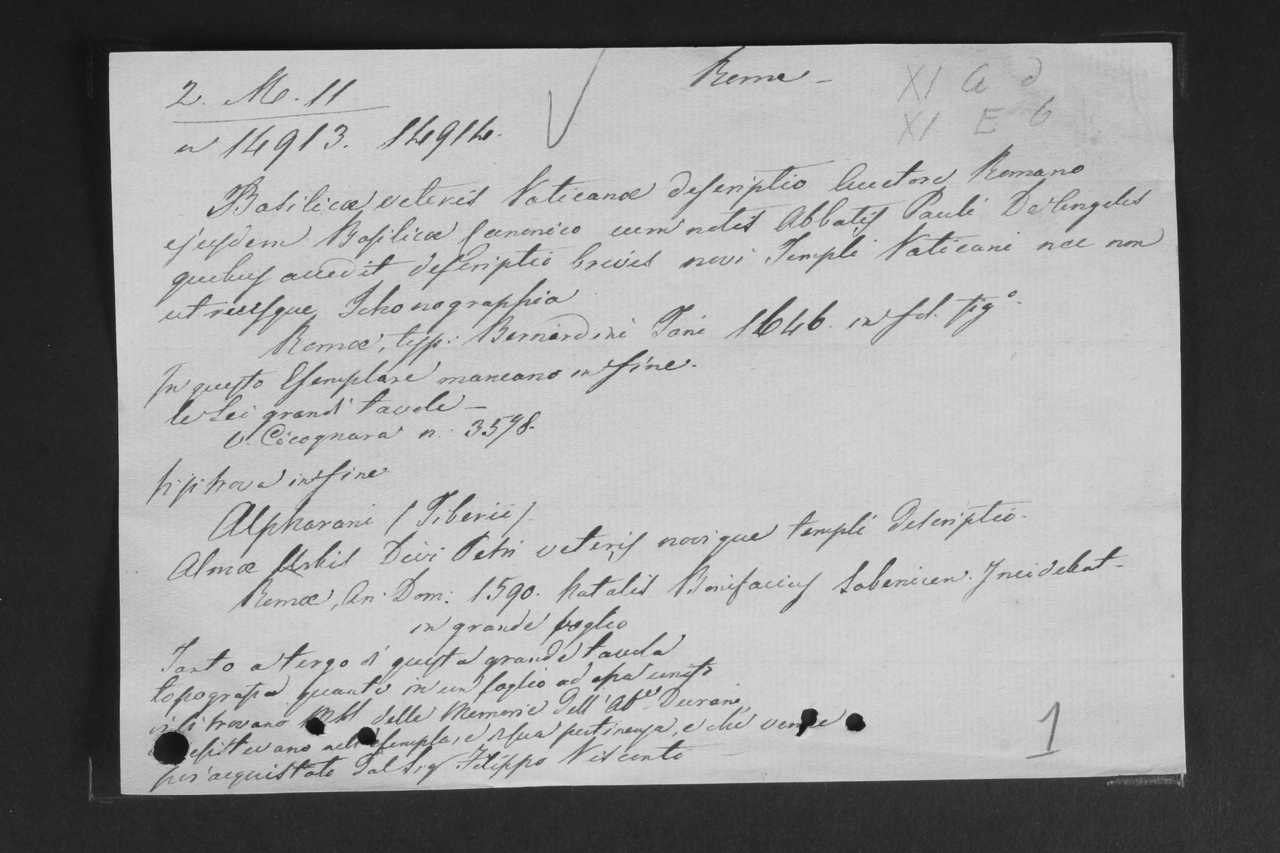 2. M. 11
Roma -
XI a d
XI E b
n 14913. 14914.
Basilicæ veteris Vaticanæ descriptio Auctore Romano
ejusdem Basilicæ Canonico cum notis Abbatis Pauli De Angelis
quibus accedit descriptio brevis novi Templi Vaticani nec non
utriusque Ichonographia
Romæ, typ: Bernardini Tani 1646. in fol. figº.
In questo Esemplare mancano in fine.
le sei grandi tavole -
V. Cicognara n. 3578.
si trova in fine
Alpharani (Tiberii)
Almæ Urbis Divi Petri veteris novique templi descriptio.
Romæ, An: Dom: 1590. Natalis Bonifacius Sebenicen. Incidebat -
in grande foglio
Tanto a tergo di questa grande tavola
topografica quanto in un foglio ad essa unito
si trovano Mss delle Memorie dell'Abe
esistevano nell'esemplare di sua pertinenza, e che venne
poi acquistato dal Sig Filippo Visconti
1